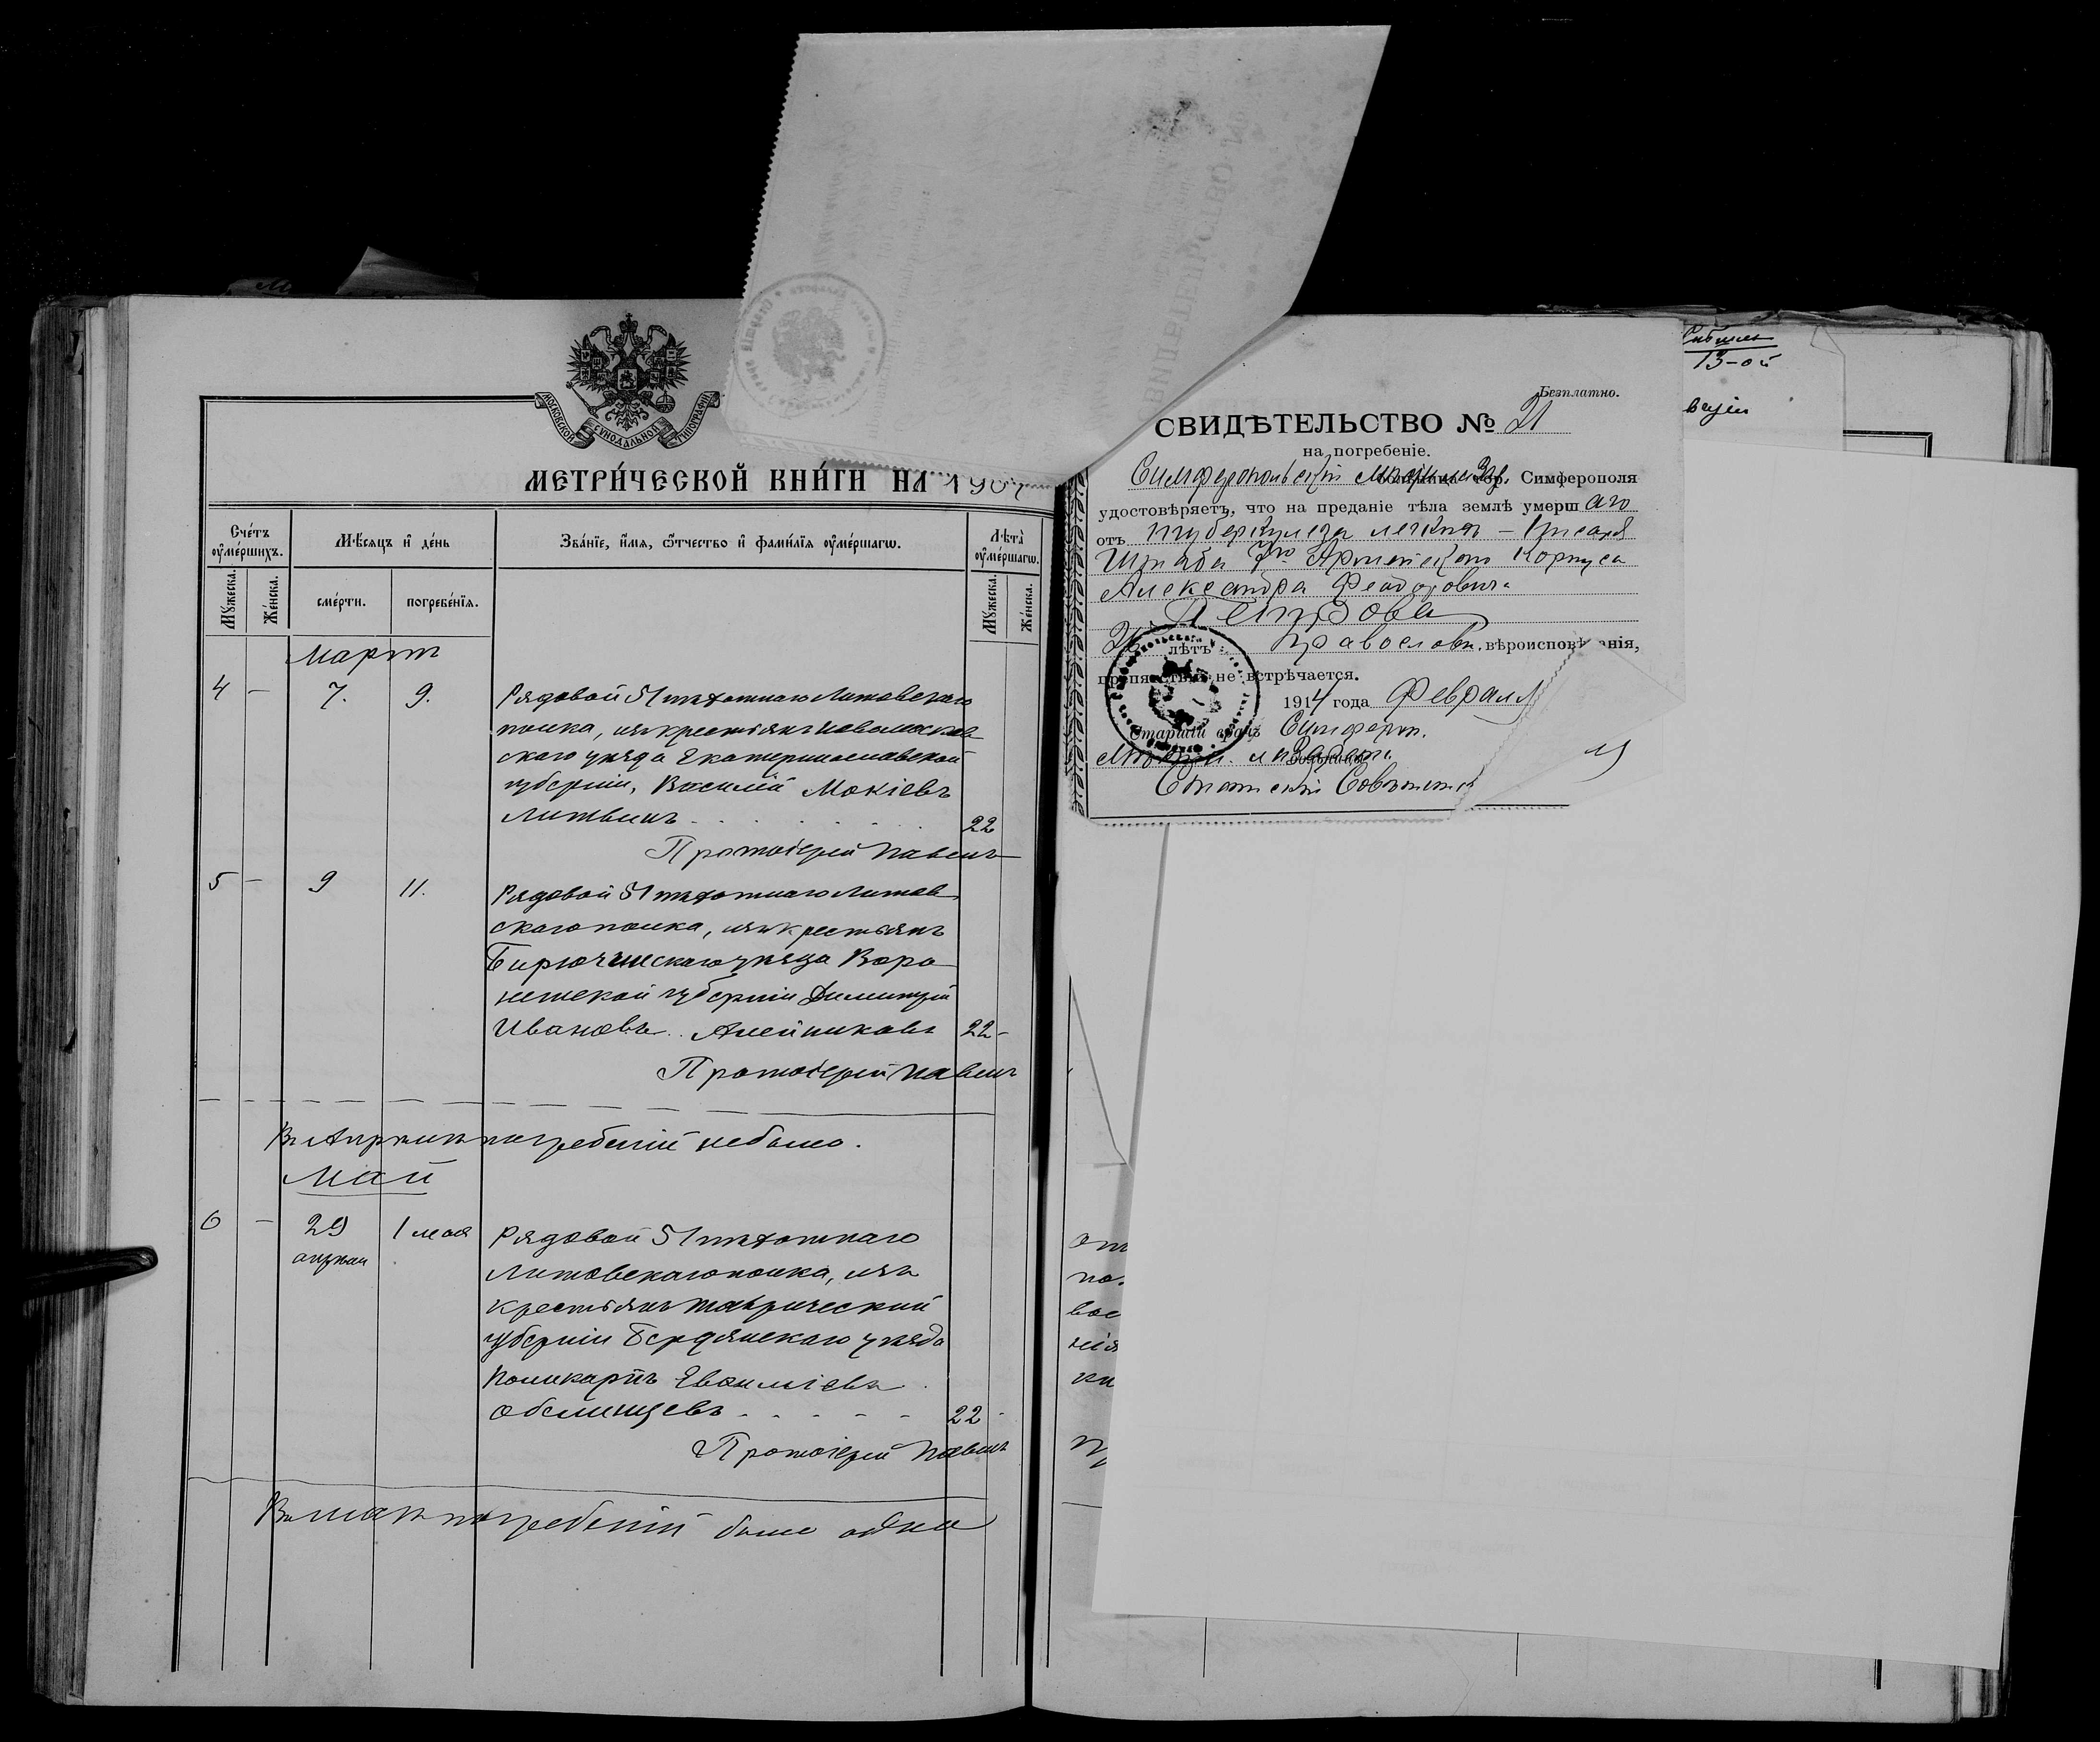 МОСКОВСКОЙ СѴНОДАЛЬНОЙ ТИПОГРАФІИ
МЕТРИ́ЧЕСКОЙ КНИ́ГИ НА 190
Сче́тъ ᲂу҆ме́ршихъ.
Мѣ́сяцъ и҆ де́нь
Зва́нїе, и҆́мя, ѻ҆́тчество и҆ фами́лїя ᲂу҆ме́ршагѡ.
Лѣта̀ ᲂу҆ме́ршагѡ.
Мꙋ́жеска.
Же́нска.
сме́рти.
погребе́нїя.
Мꙋ́жеска.
Же́нска.
Мартъ
4 — 7. 9. Рядовой 51 пѣхотнаго Литовскаго
полка, изъ крестьянъ Новомосков
скаго уѣзда Екатеринославской
губерніи, Василій Мокіевъ
Литвинъ 22
Протоіерей Павелъ
5 — 9 11. Рядовой 51 пѣхотнаго Литов
скаго полка, изъ крестьянъ
Бирюченскаго уѣзда Воро
нежской губерніи Димитрій
Ивановъ Алейниковъ 22 -
Протоіерей Павелъ
Въ Апрѣлѣ погребеній не было.
Май
6 — 29 апрѣля 1 мая Рядовой 51 пѣхотнаго
Литовскаго полка, изъ
крестьянъ Таврической
губерніи Бердянскаго уѣзда
Поликарпъ
22 -
Протоіерей Павелъ
Въ маѣ погребеній было одно
13-ой
Безплатно.
СВИДѢТЕЛЬСТВО № 21
на погребеніе.
Симферопольскій Симферополя
удостовѣряетъ, что на преданіе тѣла землѣ умершаго
отъ туберкулеза легкихъ – Писаря
Штаба 7го Армейскаго Корпуса
Александра Феодоровича
Петрова
лѣтъ православн. вѣроисповѣданія,
препятствій не встрѣчается.
1914 года Февраля
Старшій врачъ Симфероп.
Статскій Совѣтникъ